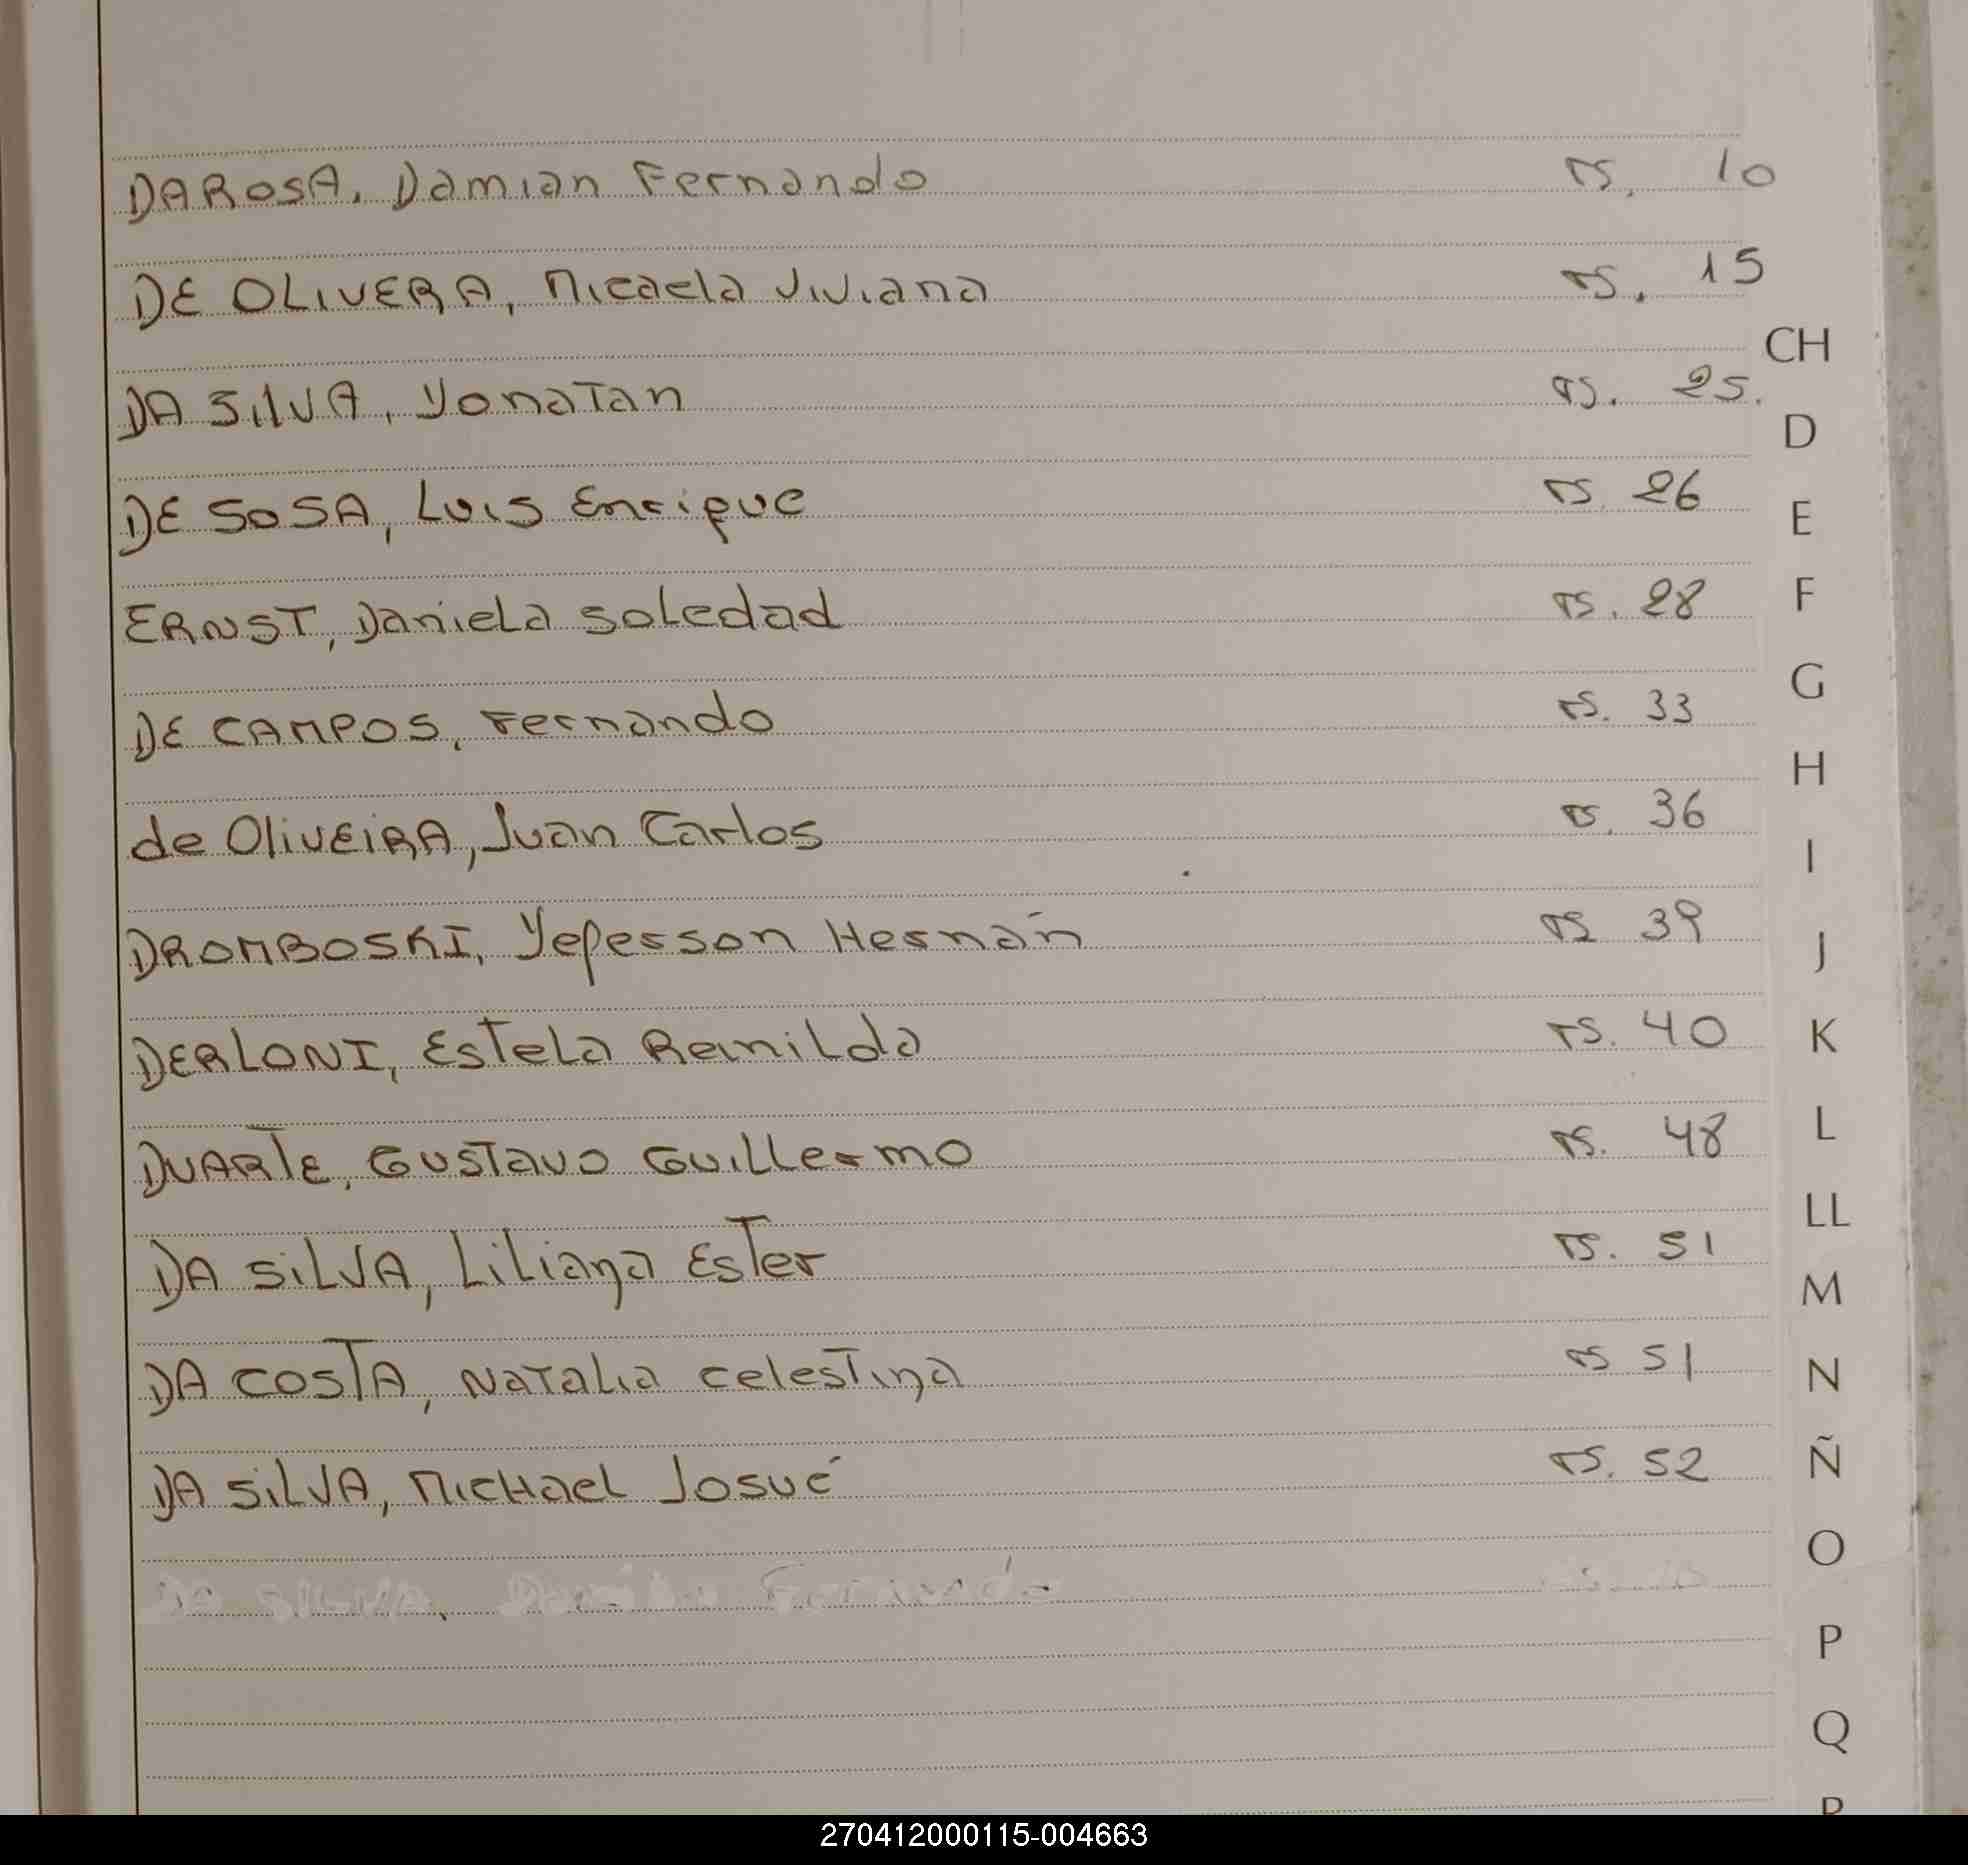 DA ROSA, Damian Fernando rs. 10
DE OLIVERA, Micaela Viviana rs. 15
DA SILVA, Yonatan rs. 25.
DE SOSA, Luis Enrique rs. 26
ERNST, Daniela Soledad rs. 28
DE CAMPOS, Fernando rs. 33
de OliVEiRA, Juan Carlos rs. 36
DROMBOSKI, Yeferson Hernán rs 39
DERLONI, Estela Remilda rs. 40
DUARTE, Gustavo Guillermo rs. 48
DA SiLVA, Liliana Ester rs. 51
DA COSTA, Natalia Celestina rs 51
DA SiLVA, Michael Josué rs. 52
DA SILVA, Fernando
CH
D
E
F
G
H
I
J
K
L
LL
M
N
Ñ
O
P
Q
270412000115-004663